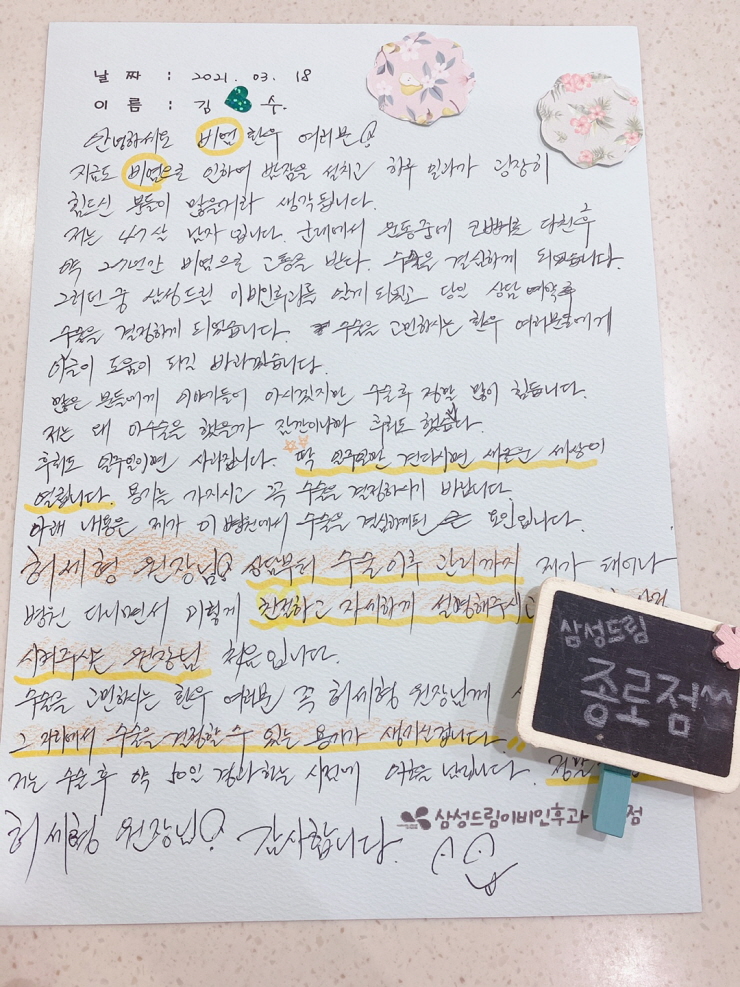 날 짜 : 2021. 03. 18
이 름 : 김 수.
안녕하세요 비염 환우 여러분
지금도 비염으로 인하여 밤잠을 설치고 하루 일과가 굉장히
힘드신 분들이 많을거라 생각됩니다.
저는 47살 남자 입니다. 군대에서 운동중에 코뼈를 다친후
약 27년간 비염으로 고통을 받다. 수술을 결심하게 되었습니다.
그러던 중 삼성드림 이비인후과를 알게 되었고 당일 상담 예약후
수술을 결정하게 되었습니다. 수술을 고민하시는 환우 여러분들에게
이글이 도움이 되길 바라겠습니다.
많은 분들에게 이야기들어 아시겠지만 수술후 정말 많이 힘듭니다.
저는 왜 이수술을 했을까 잠깐이나마 후회도 했습니다.
후회도 일주일이면 사라집니다. 딱 일주일만 견디시면 새로운 세상이
열립니다. 용기를 가지시고 꼭 수술을 결정하시기 바랍니다.
아래 내용은 제가 이 병원에서 수술을 결심하게된 요인입니다.
허세형 원장님 상담부터 수술이후 관리까지 제가 태어나
병원 다니면서 이렇게 친절하고 자세하게 설명해주시고
시켜주시는 원장님 처음입니다.
수술을 고민하시는 환우 여러분 꼭 허세형 원장님께
그 자리에서 수술을 결정할 수 있는 용기가 생기실겁니다
저는 수술후 약 50일 경과하는 시점에 이글을 남깁니다. 정말
허세형 원장님 감사합니다.
삼성드림이비인후과 점
삼성드림
종로점~